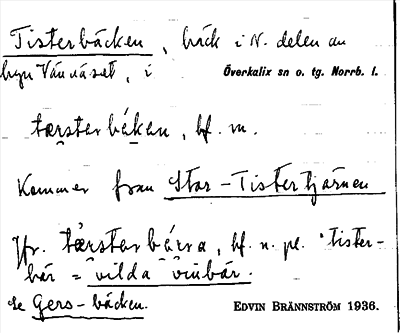 Tisterbäcken, bäck i N. delen av
byn Vännäset, i Överkalix sn o. tg. Norrb. l.
tærsterbékɛn, bf. m.
Kommer från Stor-Tistertjärnen
Jfr. tærsterbérra, bf. n. pl. "tister-
bär = "vilda" vinbär.
se Gers-bäcken. EDVIN BRÄNNSTRÖM 1936.